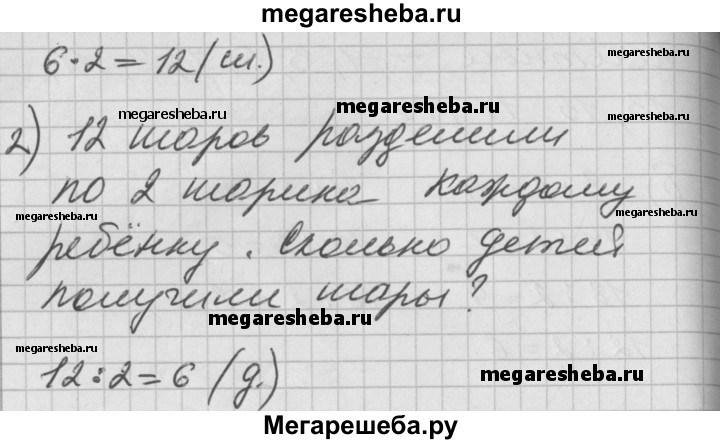 megaresheba.ru
6·2=12(ш.)
megaresheba.ru
megaresheba.ru
megaresheba.ru
2) 12 шаров разделили
megaresheba.ru
по 2 шарика каждому
megaresheba.ru
megaresheba.ru
ребёнку. Сколько детей
получили шары?
megaresheba.ru
megaresheba.ru
12:2=6 (д.)
megaresheba.ru
megaresheba.ru
Мегарешеба.ру